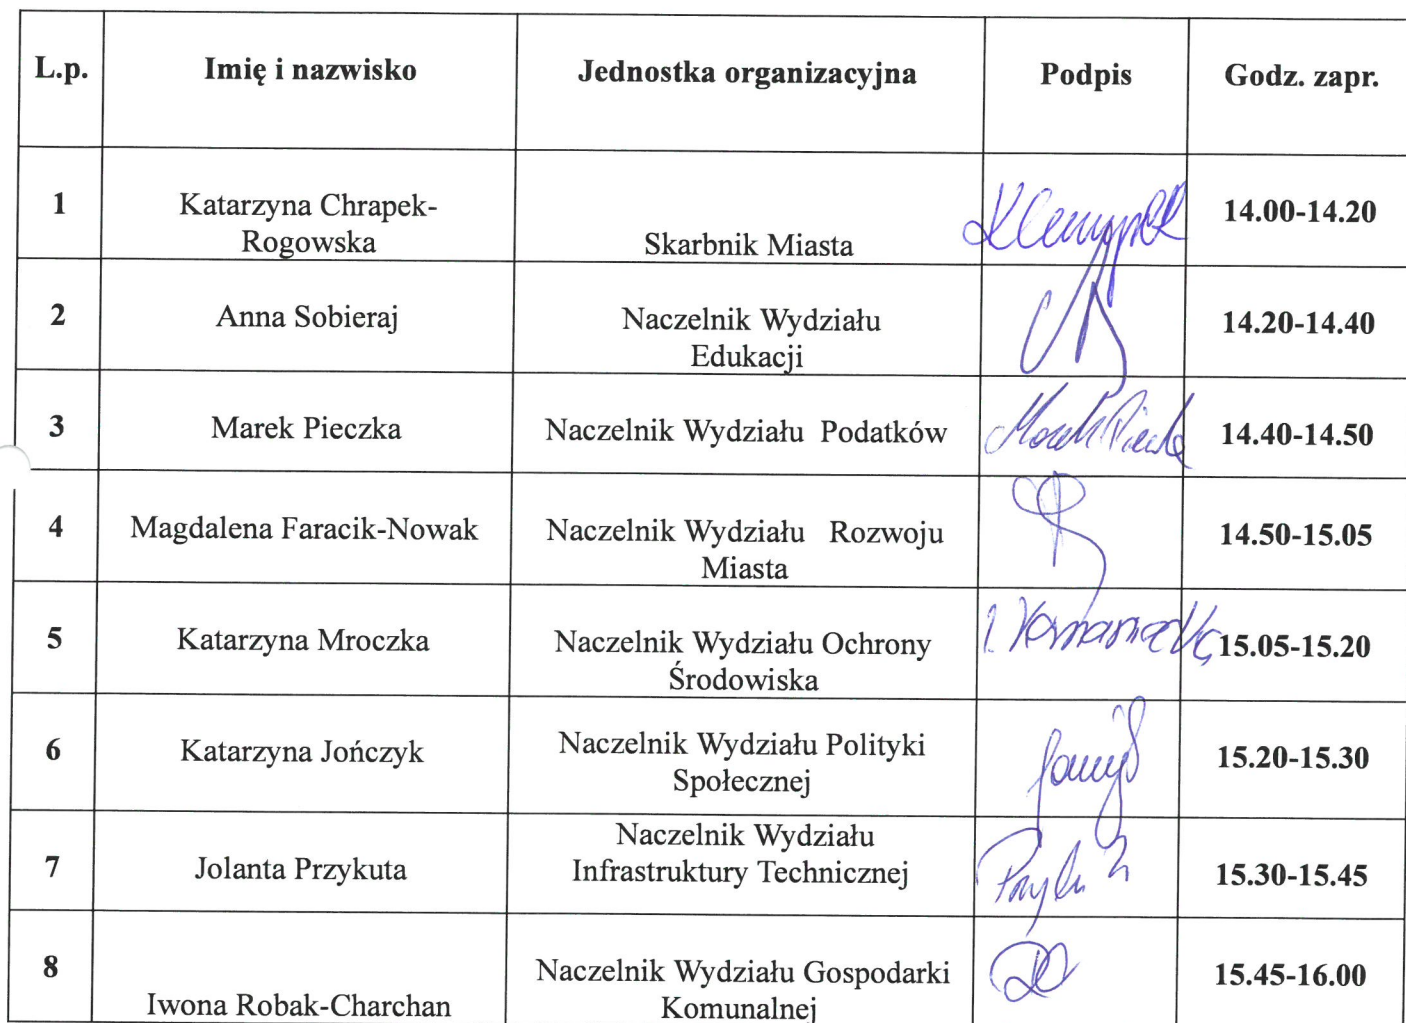 L.p. Imię i nazwisko Jednostka organizacyjna Podpis Godz. zapr.
1 Katarzyna Chrapek-
Rogowska Skarbnik Miasta 14.00-14.20
2 Anna Sobieraj Naczelnik Wydziału
Edukacji 14.20-14.40
3 Marek Pieczka Naczelnik Wydziału Podatków 14.40-14.50
4 Magdalena Faracik-Nowak Naczelnik Wydziału Rozwoju
Miasta 14.50-15.05
5 Katarzyna Mroczka Naczelnik Wydziału Ochrony
Środowiska 15.05-15.20
6 Katarzyna Jończyk Naczelnik Wydziału Polityki
Społecznej 15.20-15.30
7 Jolanta Przykuta Naczelnik Wydziału
Infrastruktury Technicznej 15.30-15.45
8 Iwona Robak-Charchan Naczelnik Wydziału Gospodarki
Komunalnej 15.45-16.00